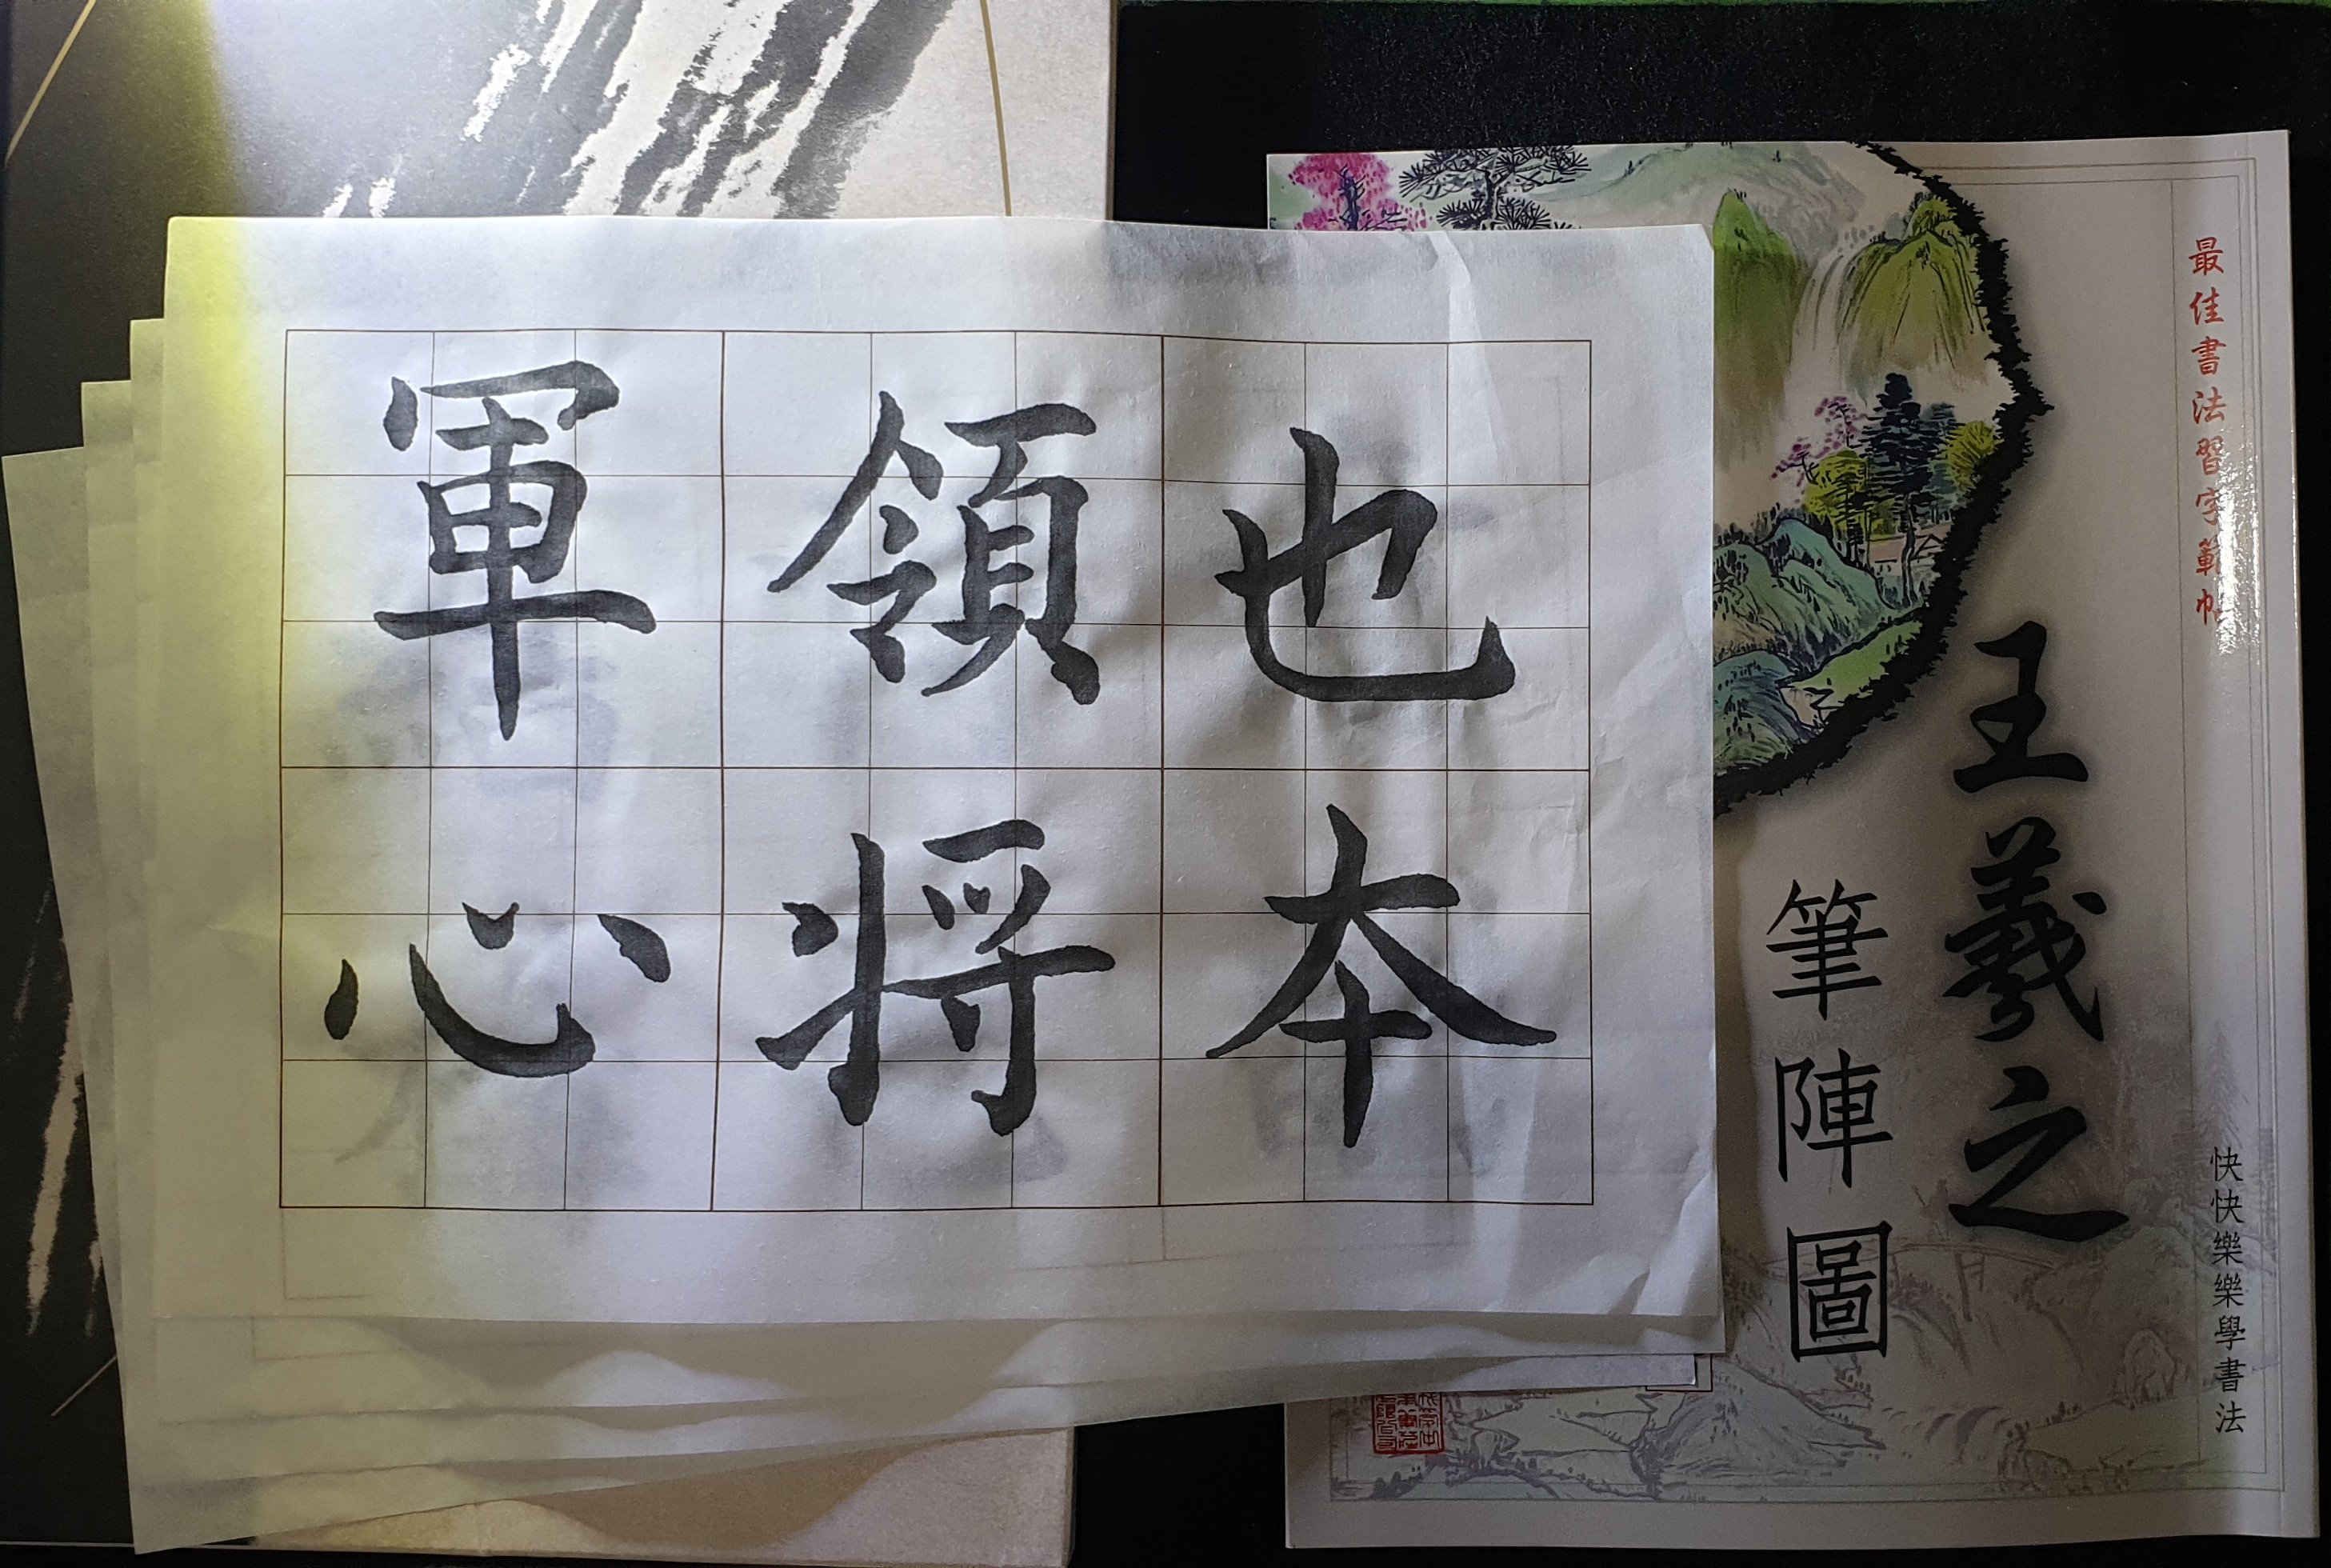 也本
領将
軍心
最佳書法習字範帖
王羲之
筆陣圖
快快樂樂學書法